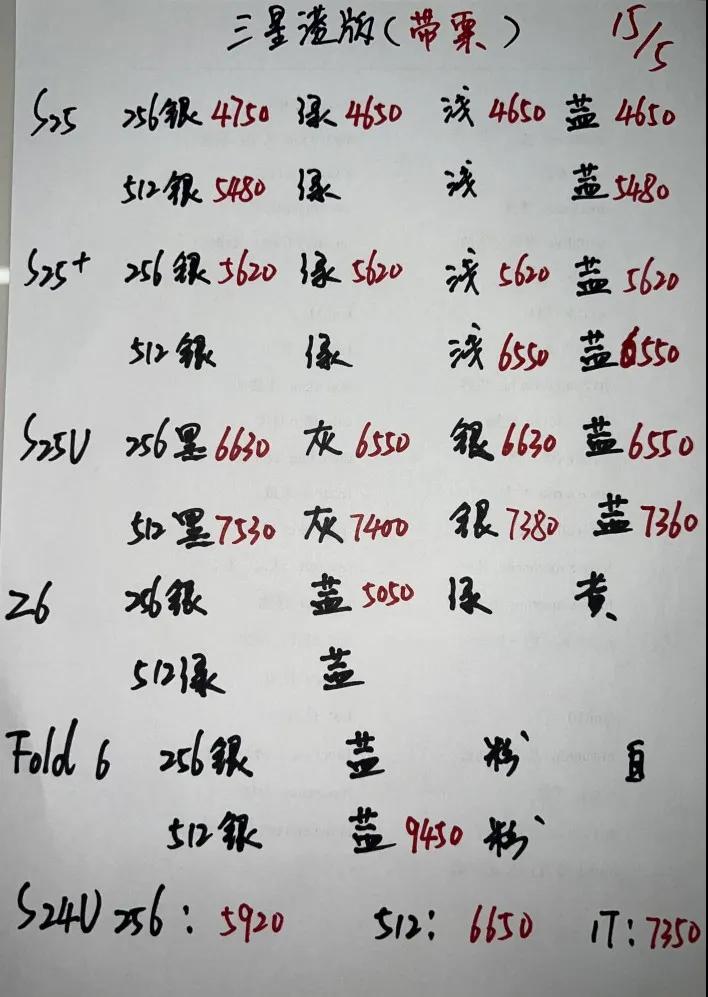 三星港版(带票) 15/5
S25 256银4750 绿4650 浅4650 蓝4650
512银5480 绿 浅 蓝5480
S25+ 256银5620 绿5620 浅5620 蓝5620
512银 绿 浅6550 蓝6550
S25U 256黑6630 灰6550 银6630 蓝6550
512黑7530 灰7400 银7380 蓝7360
Z6 256银 蓝5050 绿 黄
512绿 蓝
Fold 6 256银 蓝 粉 白
512银 蓝9450 粉
S24U 256:5920 512:6650 1T:7350